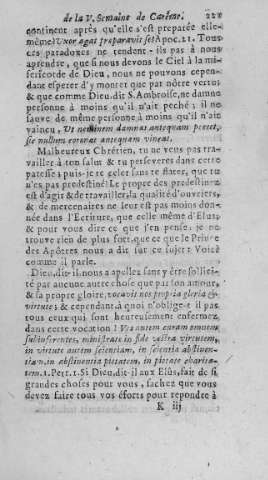 de la V. Semaine de Carême. 221
continent après qu'elle s'est preparée elle-
même Uxor agni praeparavit se Apoc. 21. Tous
ces paradoxes ne tendent-ils pas à nous
aprendre, que si nous devons le Ciel à la mi-
sericorde de Dieu, nous ne pouvons cepen-
dant esperer d'y monter que par nôtre vertu
& que comme Dieu, dit S. Ambroise, ne damne
personne à moins qu'il n'ait peché; il ne
sauve de même personne à moins qu'il n'ait
vaincu, Ut neminem damnat antequam peccet,
sic nullum coronat antequam vincat.
Malheureux Chrétien, tu ne veux pas tra-
vailler à ton salut & tu perseveres dans cette
paresse; puis-je te celer sans te flater, que tu
n'es pas predestiné? Le propre des predestinez
est d'agir & de travailler, la qualité d'ouvriers,
& de mercenaires ne leur est pas moins don-
née dans l'Ecriture, que celle même d'Elus,
& pour vous dire ce que j'en pense, je ne
trouve rien de plus fort, que ce que le Prince
des Apôtres nous a dit sur ce sujet: Voicé
comme il parle.
Dieu, dit-il, nous a apellez sans y être sollici-
té par aucune autre chose que par son amour,
& sa propre gloire, vocavit nos propria gloria &
virtute; & cependant à quoi n'oblige-t'il pas
tous ceux qui sont heureusement enfermez
dans cette vocation? Vos autem curam omnem
subinferentes, ministrate in fide vestra virtutem,
in virtute autem scientiam, in scientia abstinen-
tiam, in abstinentia pietatem, in pietate charita-
tem. 1. Petr. 1. Si Dieu, dit-il aux Elûs, fait de si
grandes choses pour vous, sachez que vous
devez faire tous vos éforts pour repondre à
K iij